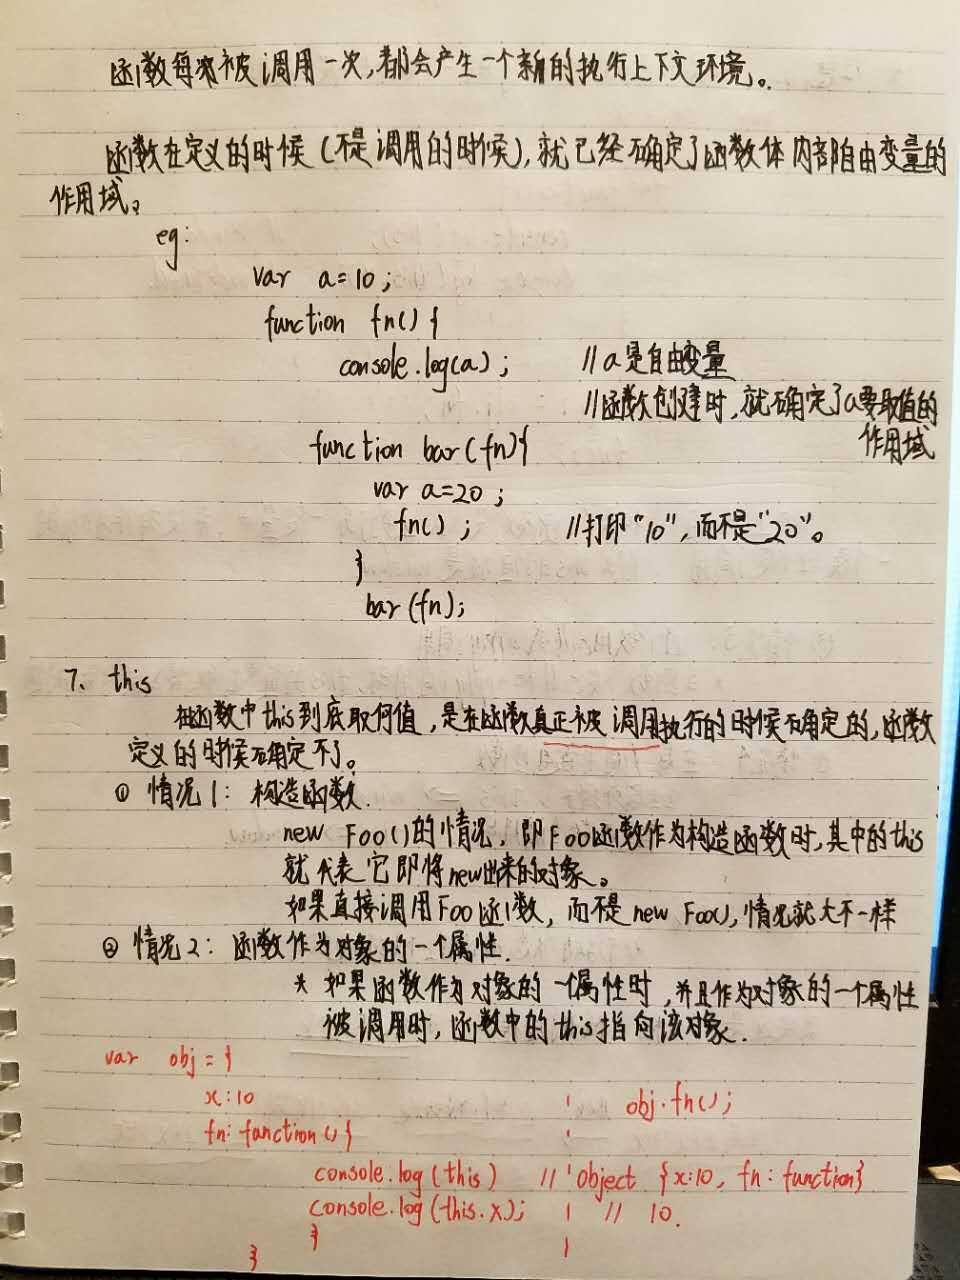 函数每次被调用一次,都会产生一个新的执行上下文环境。
函数在定义的时候(不是调用的时候),就已经确定了函数体内部自由变量的
作用域。
eg:
var a=10;
function fn(){
console.log(a); //a是自由变量
//函数创建时,就确定了a要取值的
作用域
function bar(fn){
var a=20;
fn(); //打印"10",而不是"20"。
}
bar(fn);
7、this
在函数中this到底取何值,是在函数真正被调用执行的时候确定的,函数
定义的时候确定不了。
① 情况1: 构造函数.
new Foo()的情况,即Foo函数作为构造函数时,其中的this
就代表它即将new出来的对象。
如果直接调用Foo函数,而不是new Foo(),情况就大不一样
② 情况2: 函数作为对象的一个属性.
* 如果函数作为对象的一个属性时,并且作为对象的一个属性
被调用时,函数中的this指向该对象.
var obj = {
x:10 obj.fn();
fn: function(){
console.log(this) // Object {x:10, fn: function}
console.log(this.x); // 10.
}
}